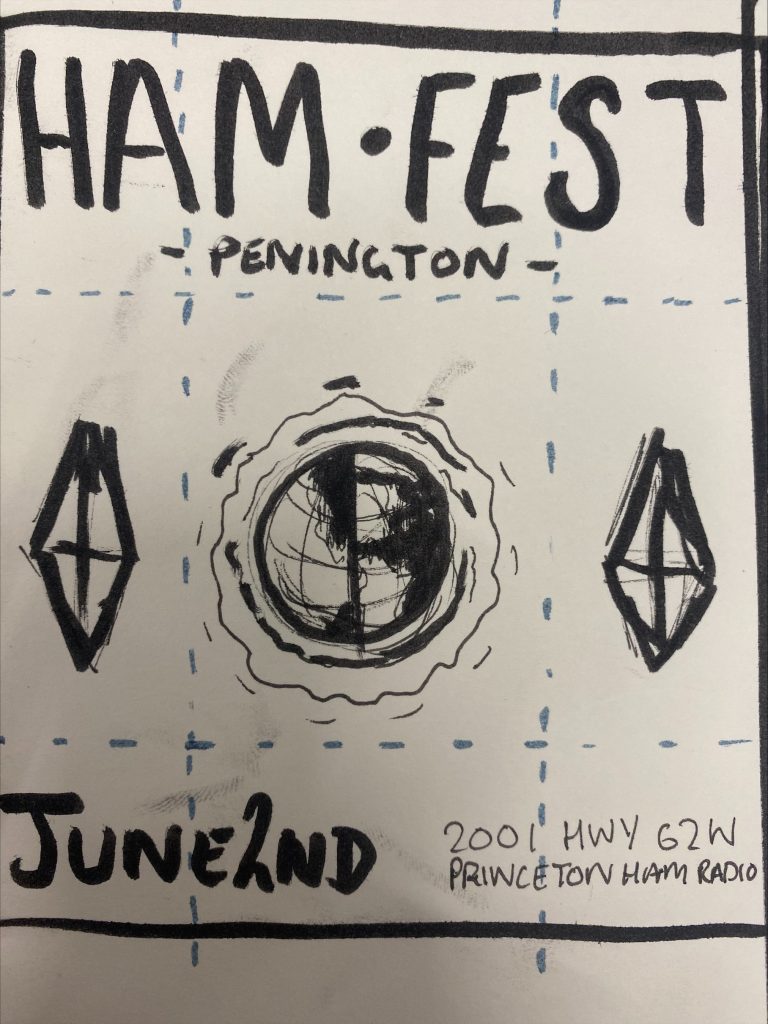 HAM • FEST
- PENINGTON -
JUNE 2ND
2001 HWY 62W
PRINCETON HAM RADIO